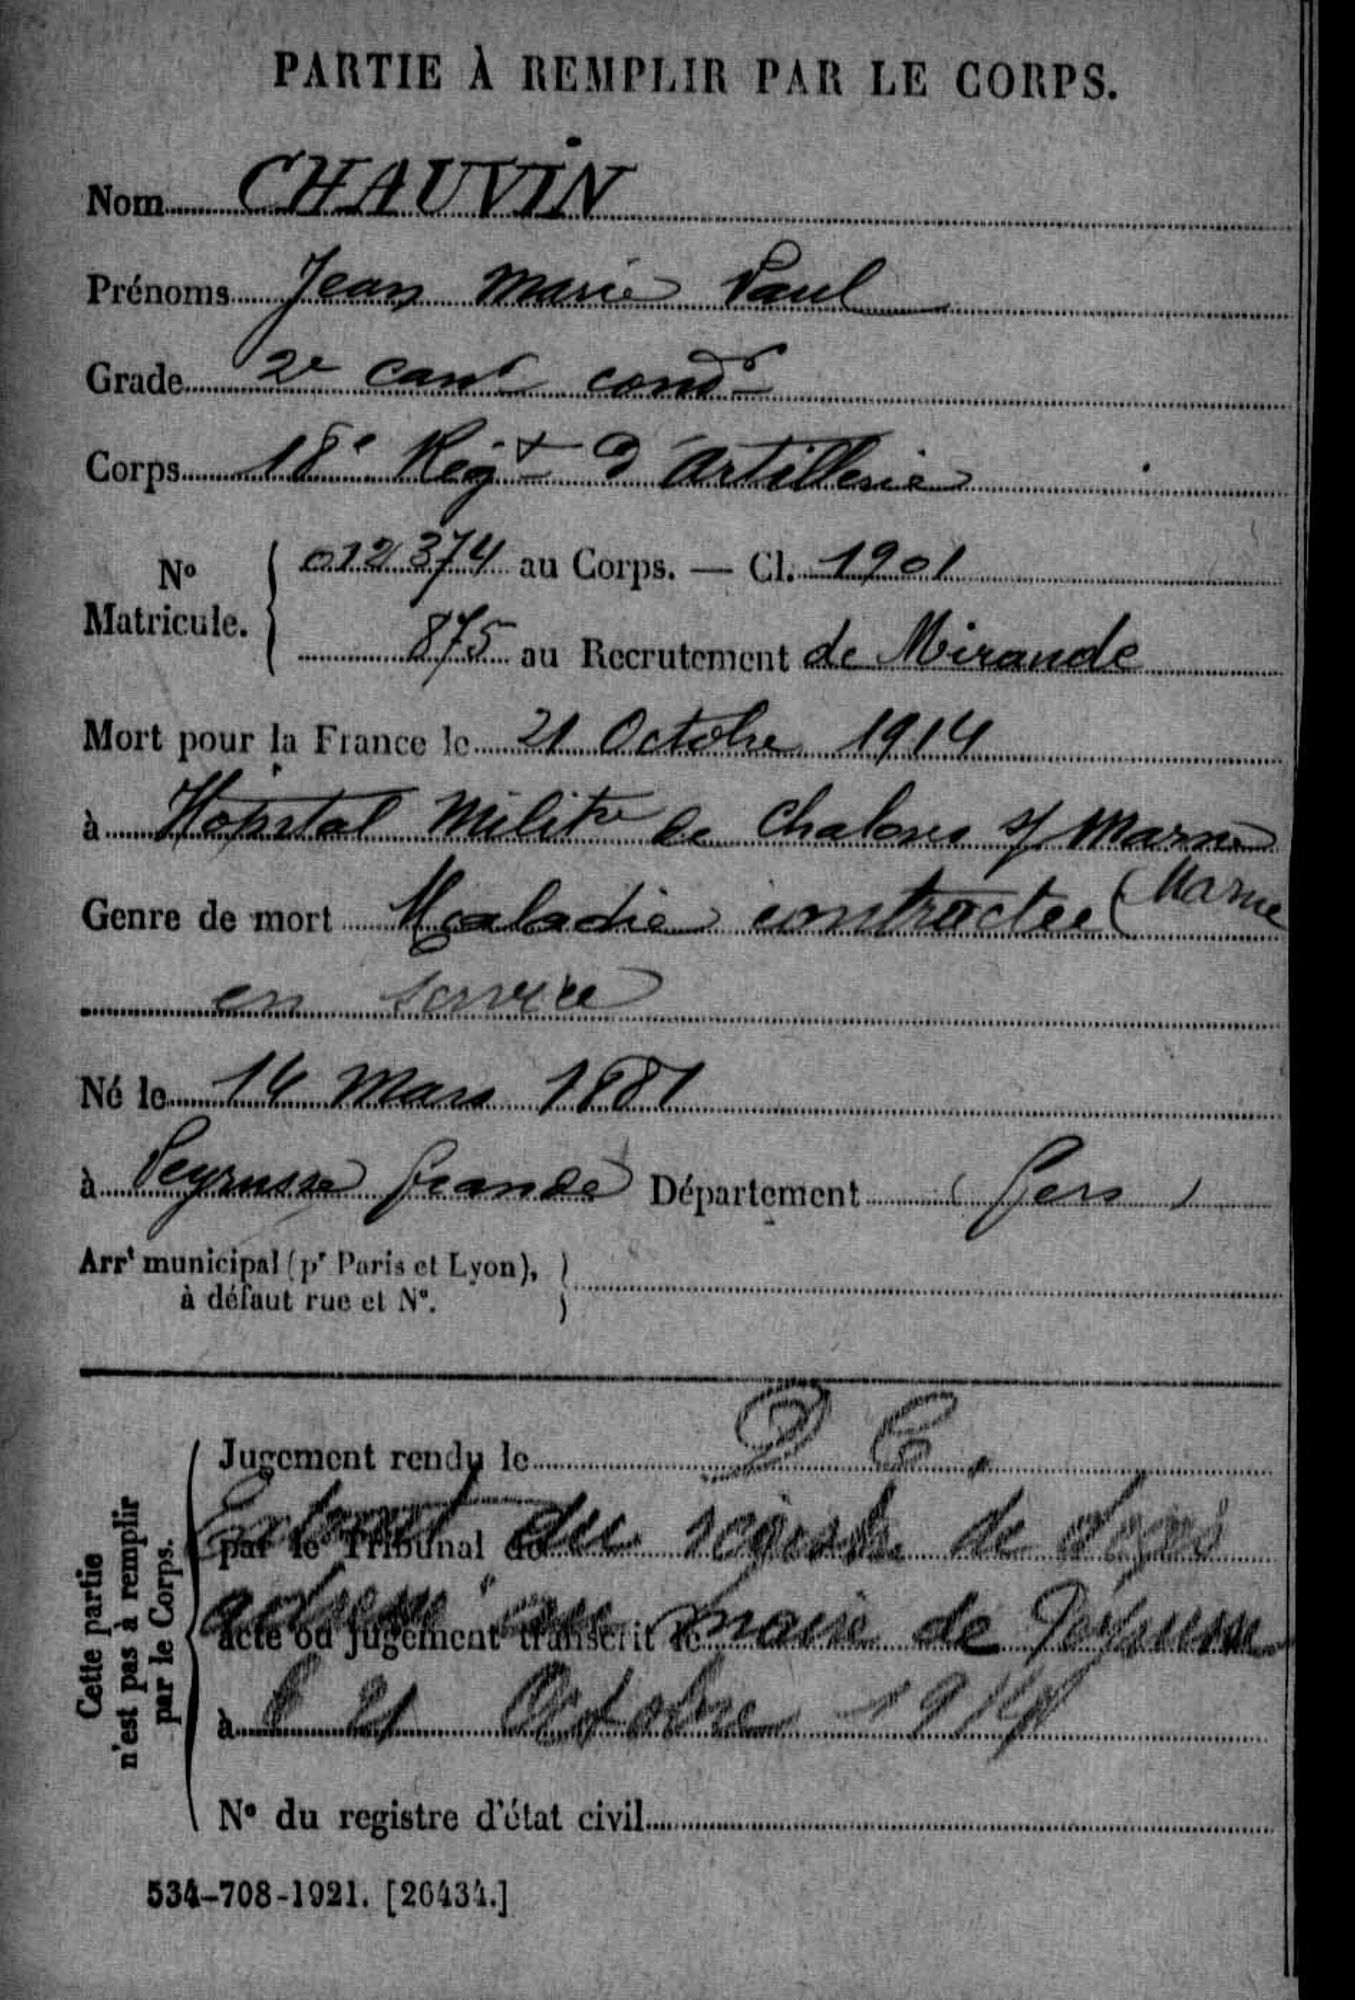 PARTIE À REMPLIR PAR LE CORPS.
Nom CHAUVIN
Prénoms Jean Marie Paul
Grade 2e cank condr
Corps 18e Regt d'Artillerie
No Matricule. { 012374 au Corps. — Cl. 1901
875 au Recrutement de Mirande
Mort pour la France le 21 Octobre 1914
à Hopital Militre de Chalons s/ Marne
(Marne
Genre de mort Maladie contractée
en service
Né le 14 Mars 1881
à Peyrusse Grande Département (Gers)
Arrt municipal (pr Paris et Lyon), }
à défaut rue et No.
Cette partie n'est pas à remplir par le Corps.
Jugement rendu le D C.
par le Tribunal de
Extrait du registre de décès
acte ou jugement transcrit le
adressé au maire de Peyrusse
à l 21 Octobre 1914
No du registre d'état civil
534-708-1921. [26434.]